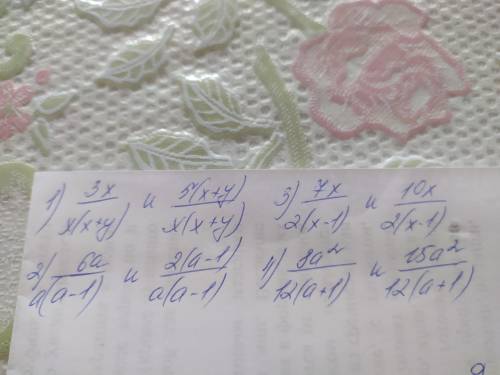 1) 3x/x(x+y) и 5(x+y)/x(x+y) 3) 7x/2(x-1) и 10x/2(x-1)
2) 6a/a(a-1) и 2(a-1)/a(a-1) 4) 8a²/12(a+1) и 15a²/12(a+1)